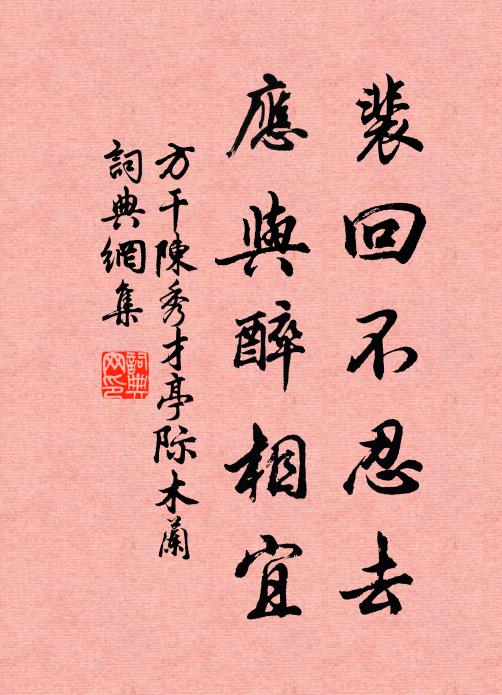 裴回不忍去
應與醉相宜
方干陳秀才亭际木蘭
詞典網集
詞典
网印